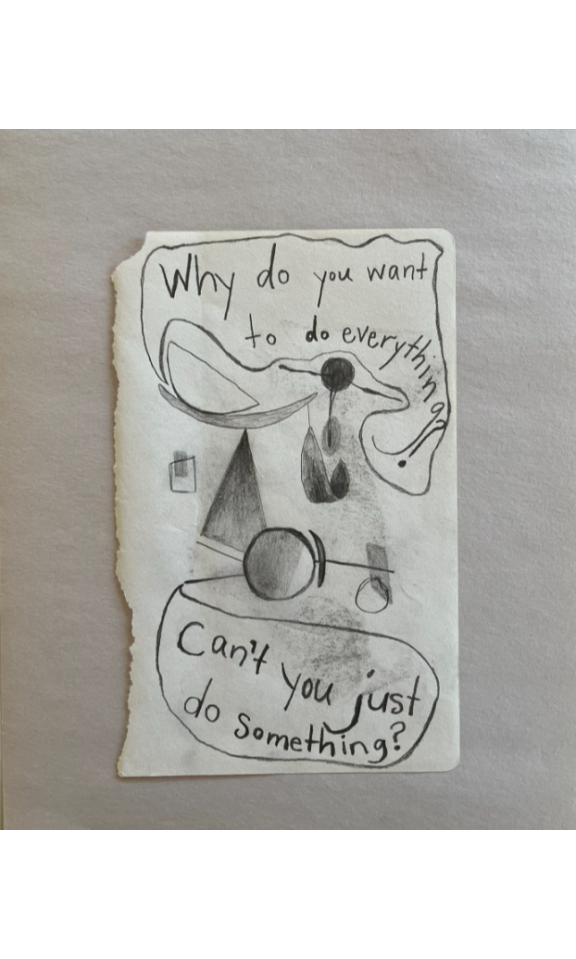 Why do you want
to do everything
Can't you just
do something?